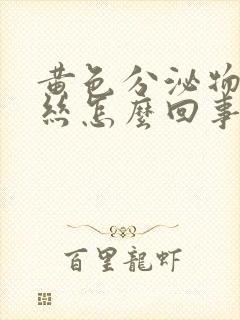 黄色分泌物
丝怎麼回事
百里龍虾